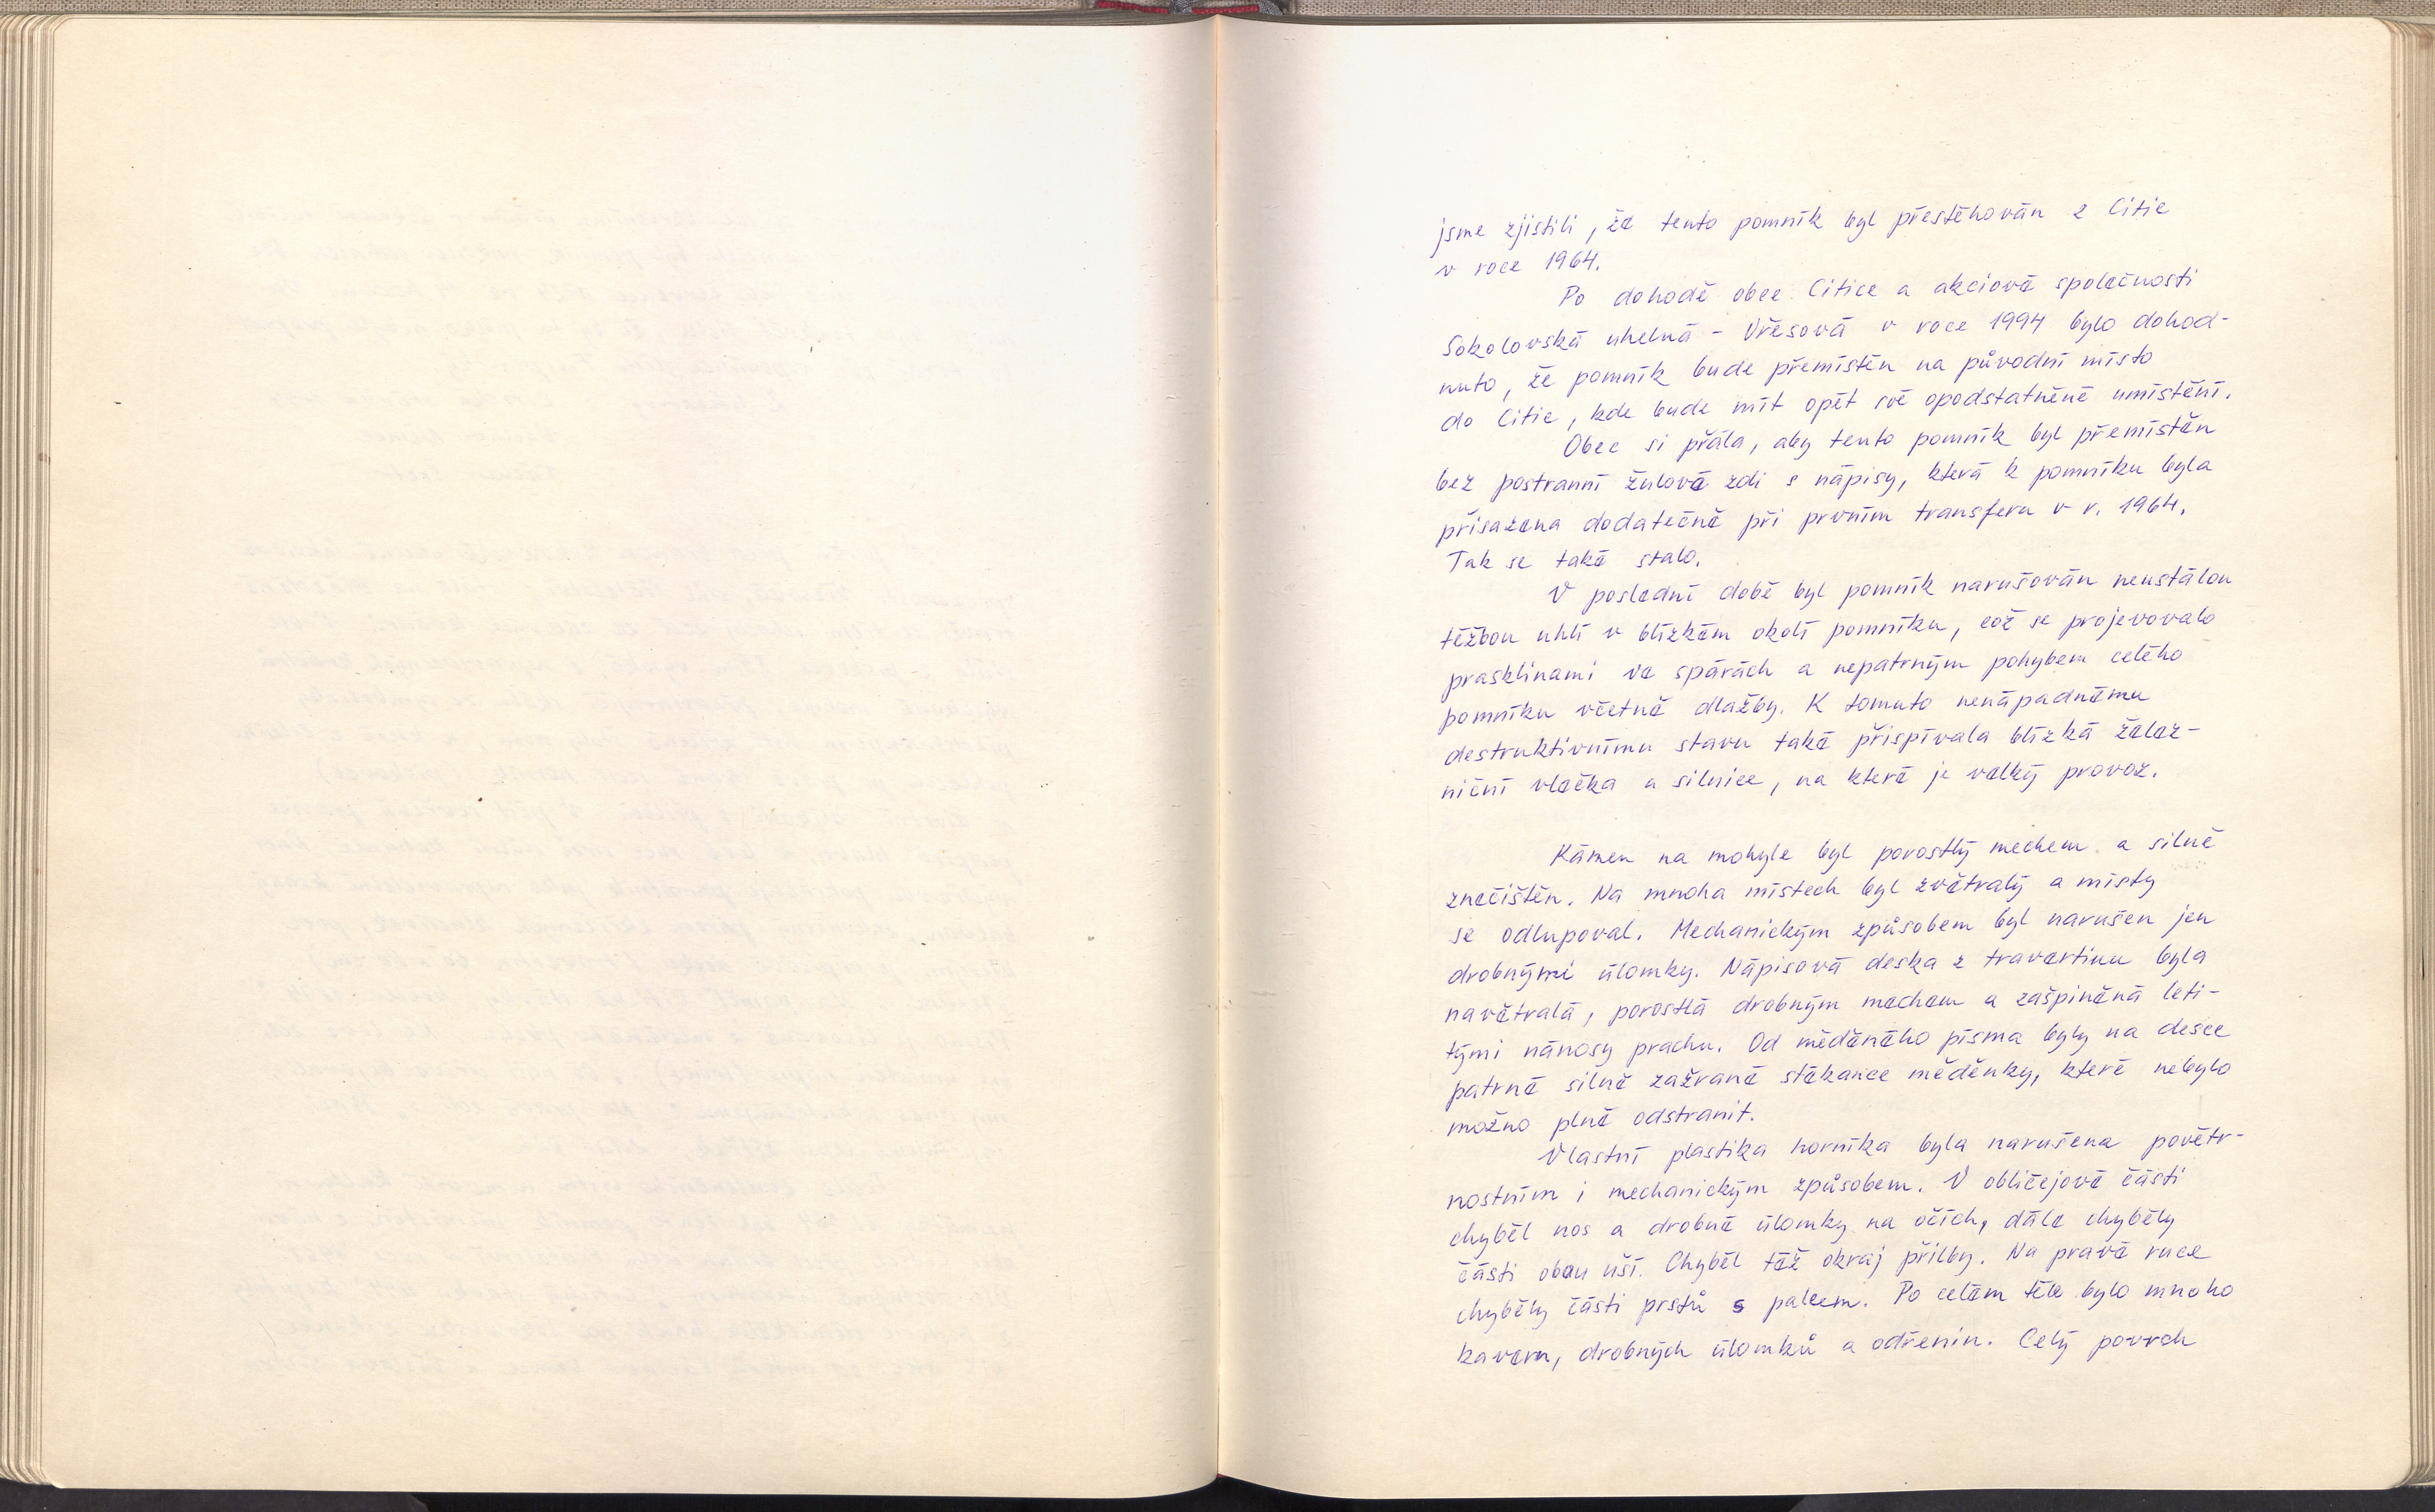 jsme zjistili, že tento pomník byl přestěhován z Citic
v roce 1964.
Po dohodě obce Citice a akciové společnosti
Sokolovská uhelná - Vřesová v roce 1994 bylo dohod-
nuto, že pomník bude přemístěn na původní místo
do Citic, kde bude mít opět své opodstatněné umístění.
Obec si přála, aby tento pomník byl přemístěn
bez postranní žulové zdi s nápisy, která k pomníku byla
přisazena dodatečně při prvním transferu v r. 1964.
Tak se také stalo.
V poslední době byl pomník narušován neustálou
těžbou uhlí v blízkém okolí pomníku, což se projevovalo
prasklinami ve spárách a nepatrným pohybem celého
pomníku včetně dlažby. K tomuto nenápadnému
destruktivnímu stavu také přispívala blízká želez-
niční vlečka a silnice, na které je velký provoz.
Kámen na mohyle byl porostlý mechem a silně
znečištěn. Na mnoha místech byl zvětralý a místy
se odlupoval. Mechanickým způsobem byl narušen jen
drobnými úlomky. Nápisová deska z travertinu byla
navětralá, porostlá drobným mechem a zašpiněná leti-
tými nánosy prachu. Od měděného písma byly na desce
patrné silně zažrané stékance měděnky, které nebylo
možno plně odstranit.
Vlastní plastika horníka byla narušena povětr-
nostním i mechanickým způsobem. V obličejové části
chyběl nos a drobné úlomky na očích, dále chyběly
části obou uší. Chyběl též okraj přilby. Na pravé ruce
chyběly části prstů s palcem. Po celém těle bylo mnoho
kavern, drobných úlomků a odřenin. Celý povrch